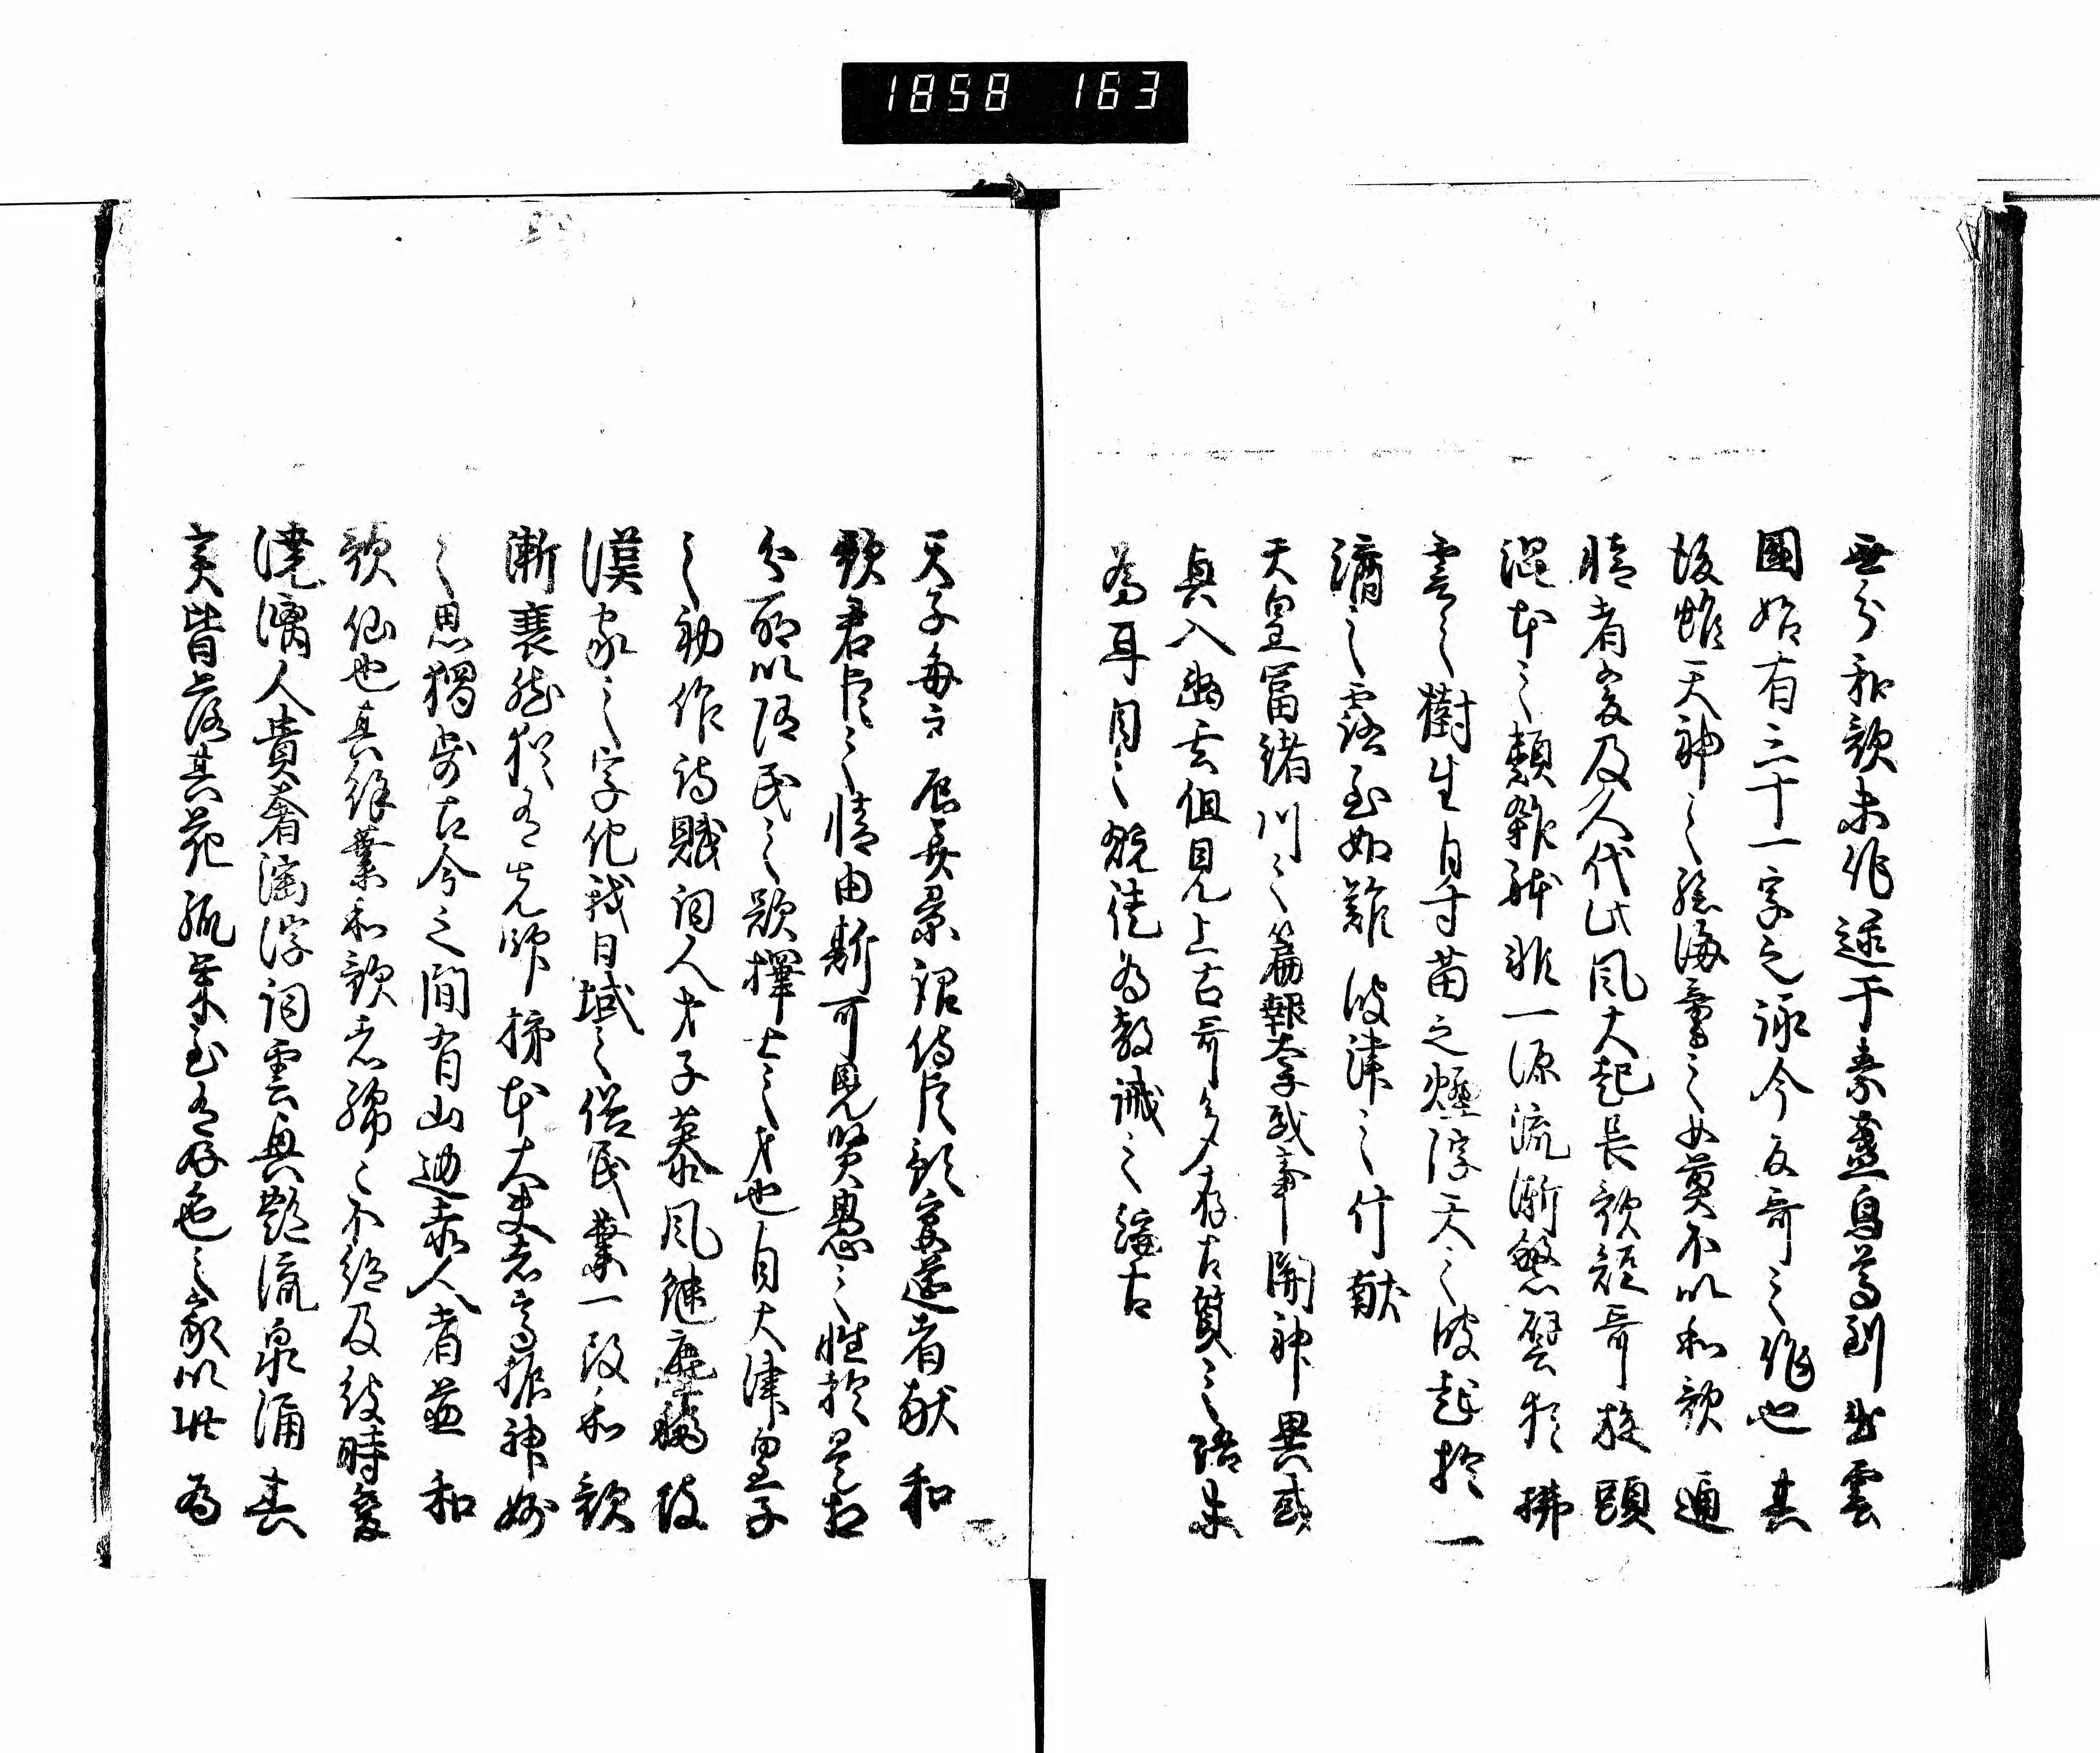 1858 163
無分和歌未作逮于素盞烏尊到出雲
國始有三十一字之詠今反哥之作也其
後雖天神之孫海童之女莫不以和歌通
情者爰及人代此風大起長歌短哥旋頭
混本之類雜躰非一源流漸繁譬猶拂
雲之樹生自寸苗之煙浮天之波起於一
滴之露至如難波津之什献
天皇富緒川之篇報太子或事開神異或
興入幽玄但見上古哥多存古質之語未
為耳目之翫徒為教誡之端古
天子每良辰美景詔侍臣預宴莚者献和
歌君臣之情由斯可見賢愚之性於是相
分所以随民之欲擇士之才也自大津皇子
之初作詩賦詞人才子慕風継塵移彼
漢家之字化我日域之俗民業一改和歌
漸衰然猶有先師柿本大夫者高振神妙
之思獨步古今之間有山邊赤人者並和
歌仙也其餘業和歌者綿々不絶及彼時変
澆漓人貴奢淫浮詞雲興艶流泉涌其
実皆落其花孤榮至有好色之家以此為